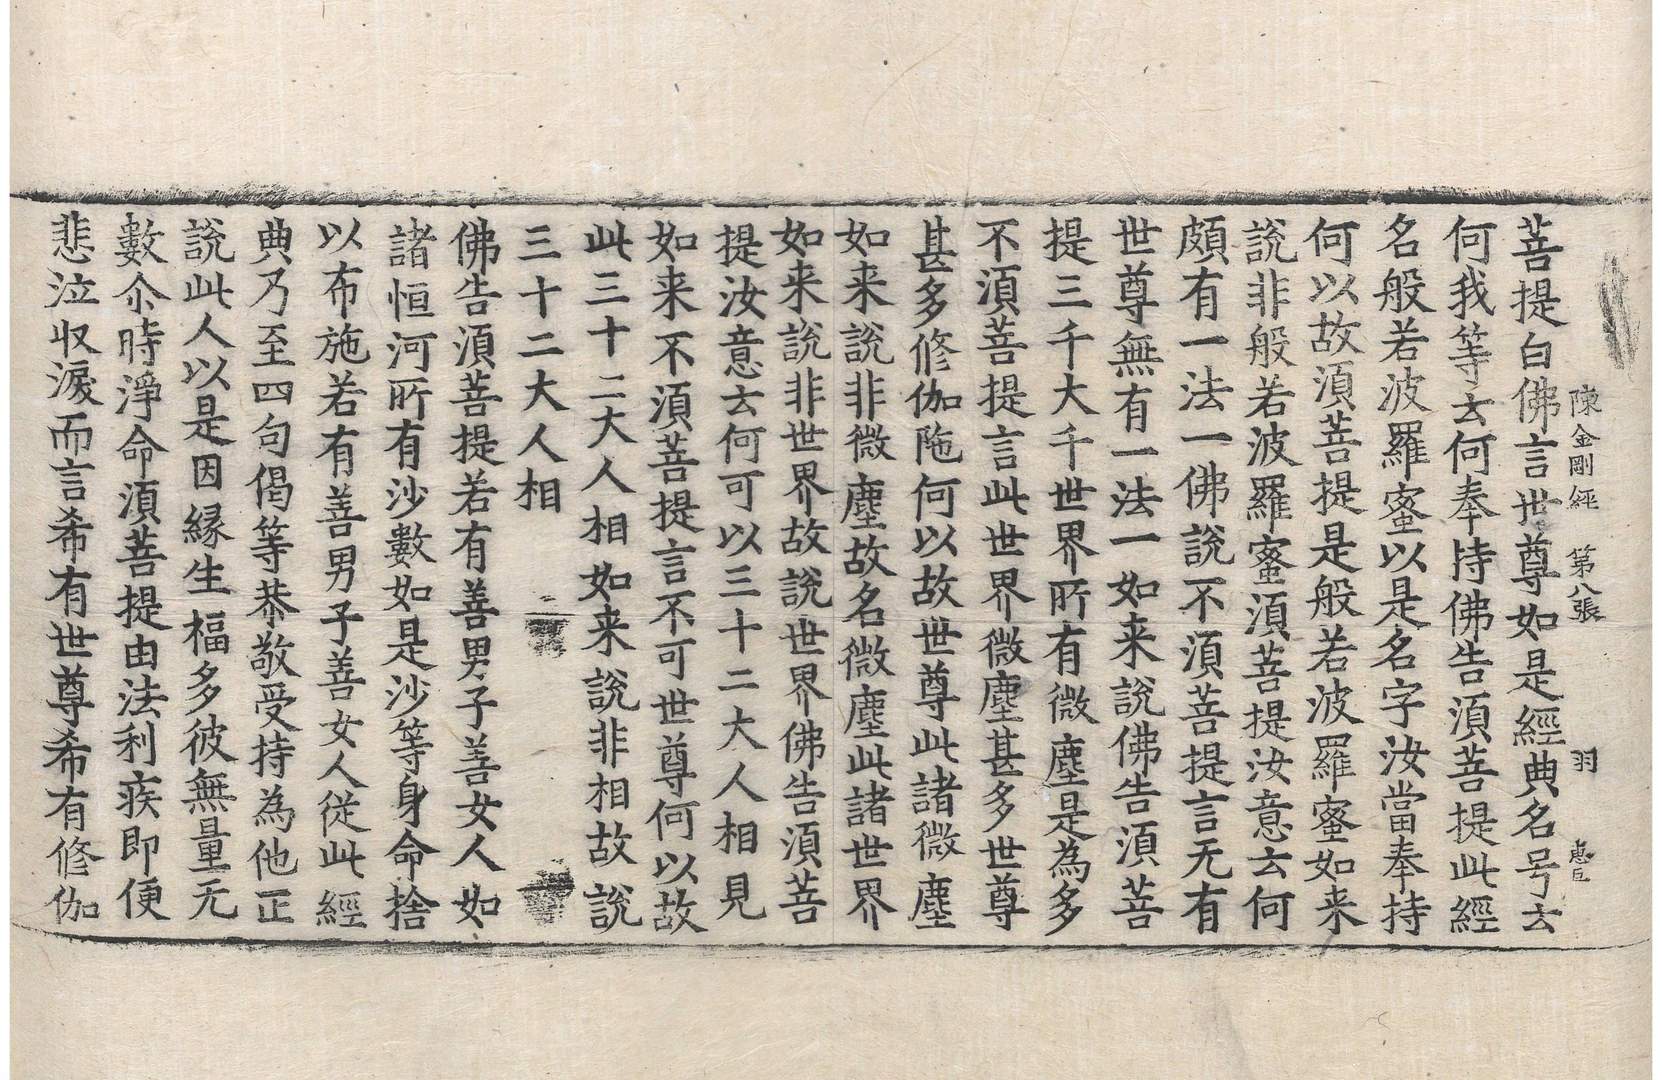 陳金剛經　第八張　羽　惠巨
菩提白佛言世尊如是經典名号云
何我等云何奉持佛告須菩提此經
名般若波羅蜜以是名字汝當奉持
何以故須菩提是般若波羅蜜如来
說非般若波羅蜜須菩提汝意云何
頗有一法一佛說不須菩提言无有
世尊無有一法一如来說佛告須菩
提三千大千世界所有微塵是為多
不須菩提言此世界微塵甚多世尊
甚多修伽陁何以故世尊此諸微塵
如来說非微塵故名微塵此諸世界
如来說非世界故說世界佛告須菩
提汝意云何可以三十二大人相見
如来不須菩提言不可世尊何以故
此三十二大人相如来說非相故說
三十二大人相
佛告須菩提若有善男子善女人如
諸恒河所有沙數如是沙等身命捨
以布施若有善男子善女人從此經
典乃至四句偈等恭敬受持為他正
說此人以是因縁生福多彼無量无
數尒時淨命須菩提由法利疾即便
悲泣収淚而言希有世尊希有修伽